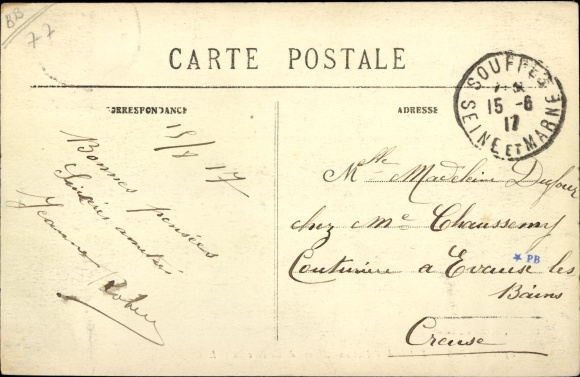 BB
77
CARTE POSTALE
CORRESPONDANCE
ADRESSE
SOUPPES
15 -6
17
SEINE ET MARNE
15/6 17
Bonnes pensées
Sincères amitiés
Jeanne
Mlle Madeleine Dufour
chez Me Chaussemy
Couturière a Evause les
Bains
Creuse
* PB